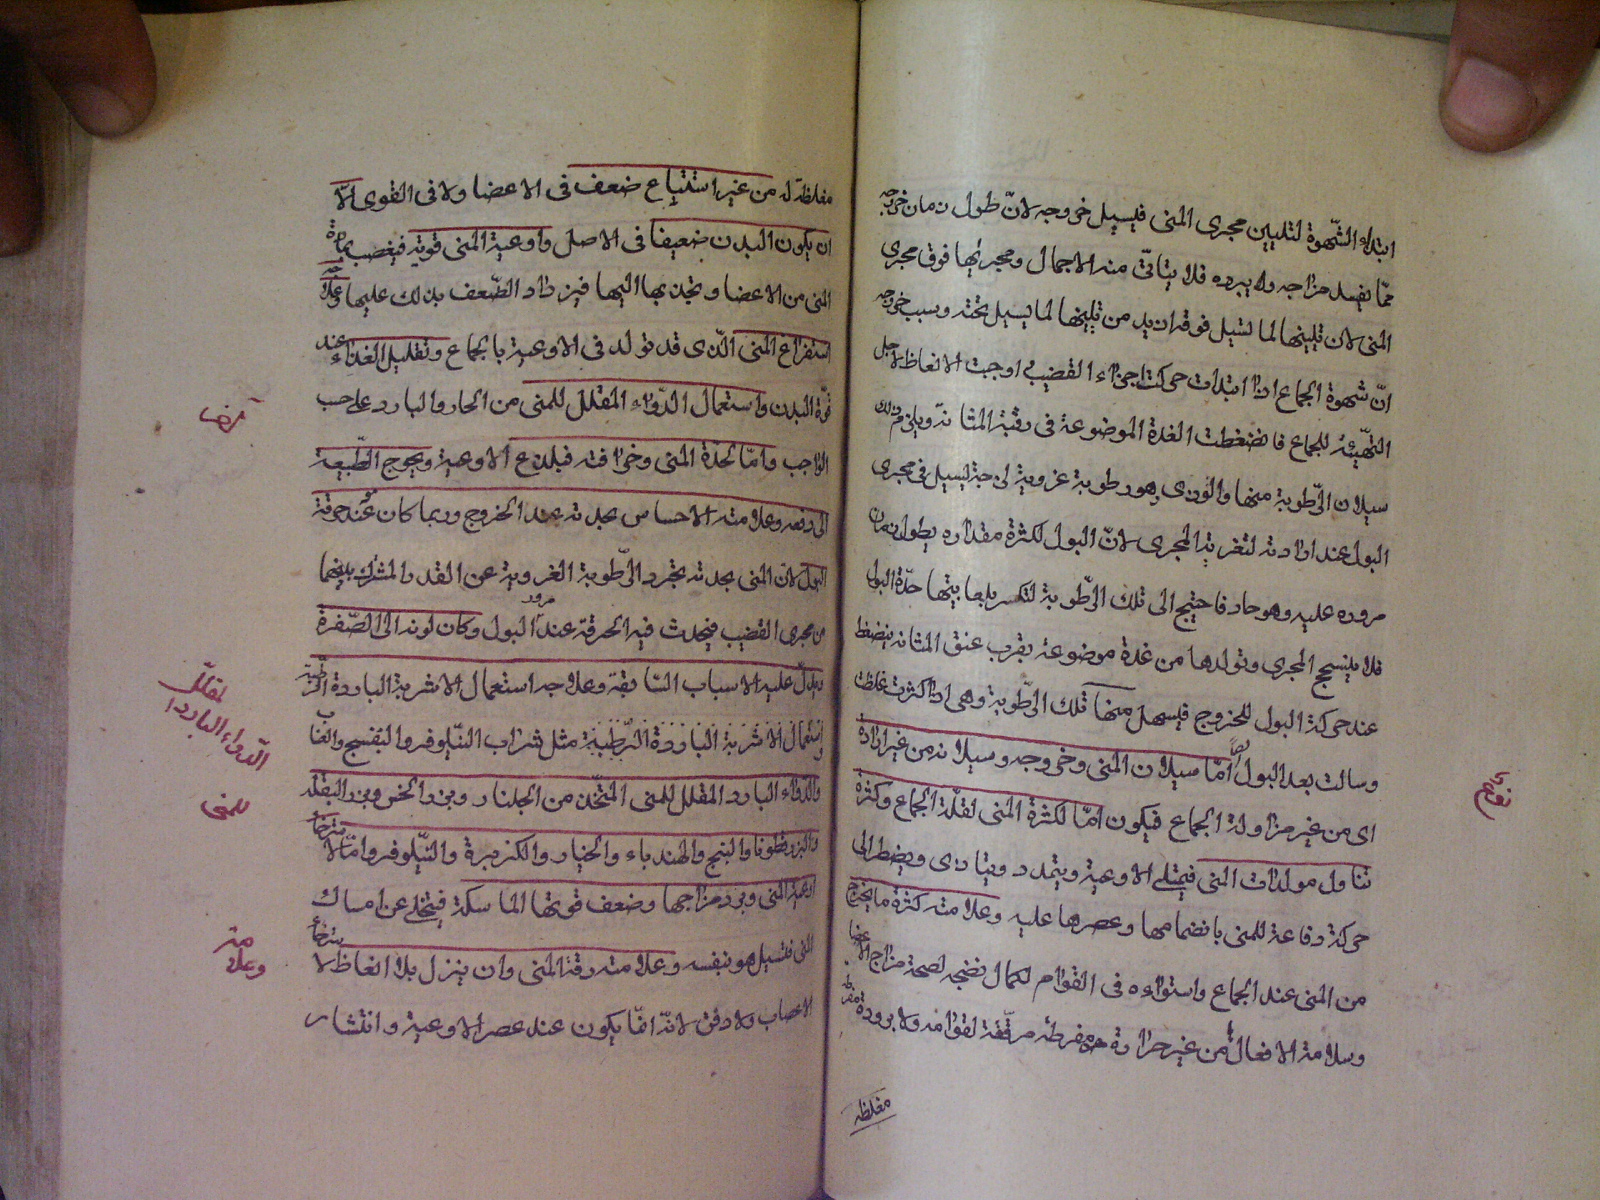 ابتداء الشّهوة لتليين مجرى المنى فيسيل خروجه لانّ طول زمان خروجه
ممّا يفسد مزاجه ولا يبرده فلا يتاتّى منه الاجمال ومجريها فوق مجرى
المنى لان تليينها لما تسيل فوقه ازيد من تليينها لما يسيل تحته وسبب خروجه
انّ شهوة الجماع اذا ابتدات حركت اجزاء القضيب اوجبت الانعاظ لاجل
التهيئة للجماع فانضغطت الغدة الموضوعة فى رقبة المثانة ويلزم ذلك
سيلان الرّطوبة منها والودى وهو رطوبة غروية لزجة تسيل فى مجرى
البول عند ارادته لتغرية المجرى لانّ البول لكثرة مقداره يطول زمان
مروره عليه وهو حاد فاحتيج الى تلك الرّطوبة لتكسر بلعابيتها حدّة البول
فلا ينسحج المجرى وتولدها من غدة موضوعة بقرب عنق المثانة ينضغط
عند حركة البول للخروج فيسهل منها تلك الرّطوبة وهى اذا كثرت غلظت
وسالت بعد البول ايضا امّا سيلان المنى وخروجه وسيلانه من غير ارادة
اى من غير مزاولة الجماع فيكون امّا لكثرة المنى لقلّة الجماع وكثرة
تناول مولدات المنى فيمتلى الاوعية ويتمدد ويتاذى ويضطر الى
حركة دفاعة للمنى بانضمامها وعصرها عليه وعلامته كثرة ما يخرج
من المنى عند الجماع واستواءه فى القوام لكمال نضجه لصحة مزاج الاعضا
وسلامة الافعال من غير حرارة مفرطة مرقّقة لقوامه ولا برودة مفرطة
مغلظة
مغلظة له من غير استتباع ضعف فى الاعضا ولا فى القوى الّا
ان يكون البدن ضعيفا فى الاصل واوعية المنى قوية فيغصب مادة
المنى من الاعضا ويجذبها اليها فيزداد الضّعف بذلك عليها وعلاجه
استفراغ المنى الّذى قد تولد فى الاوعية بالجماع وتقليل الغذاء عند
قوّة البدن واستعمال الدّواء المقلل للمنى من الحار والبارد على حسب
الواجب وامّا لحدّة المنى وحرافته فيلذع الاوعية ويحوج الطّبيعة
الى دفعه وعلامته الاحساس بحدته عند الخروج وربما كان معه حرقة
البول لانّ المنى بحدته يجرد الرّطوبة الغروية عن الغدد المشترك بينهما
من مجرى القضيب فيحدث فيه الحرقة عند مرور البول وكان لونه الى الصّفرة
ويدلّ عليه الاسباب السّابقة وعلاجه استعمال الاشربة الباردة الرّطبة
استعمال الاشربة الباردة الرّطبة مثل شراب النّيلوفر والبنفسج والعناب
والدّواء البارد المقلل للمنى المتّخذ من الجلنار وبزر الخس وبزر البقلة
والبزرقطونا والبنج والهندباء والخيار والكزبرة والنّيلوفر وامّا لاسترخاء
اوعية المنى وبرد مزاجها وضعف قوتها الماسكة فيتخلى عن امساك
المنى فتسيل هو بنفسه وعلامته رقة المنى وان ينزل بلا انعاظ لاسترخاء
الاعصاب ولا دفق لانّه انّما يكون عند عصر الاوعية وانتشار
المقلل
الدّواء البارد
للمنى
وعلامته